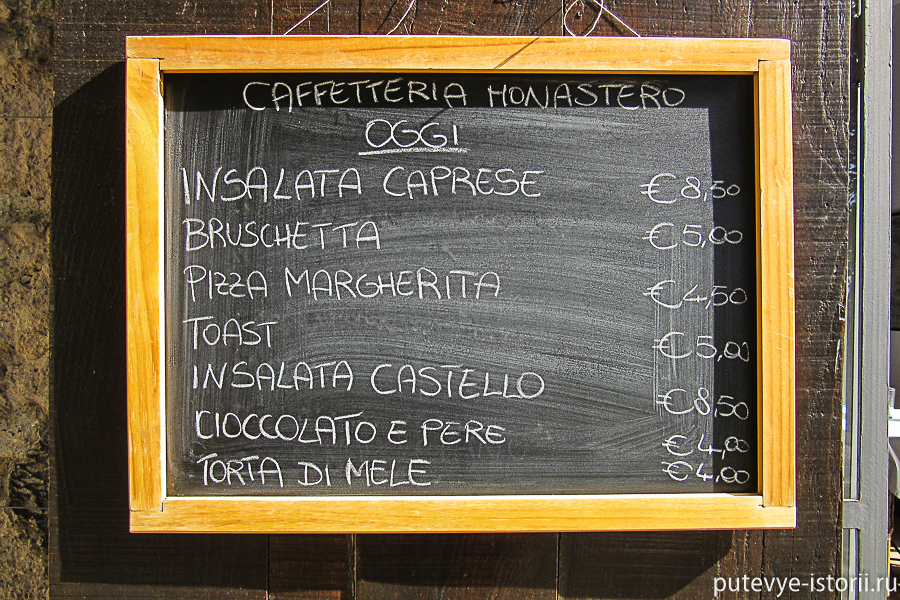 CAFFETTERIA MONASTERO
OGGI
INSALATA CAPRESE €8,50
BRUSCHETTA €5,00
PIZZA MARGHERITA €4,50
TOAST €5,00
INSALATA CASTELLO €8,50
CIOCCOLATO E PERE €4,00
TORTA DI MELE €4,00
putevye-istorii.ru